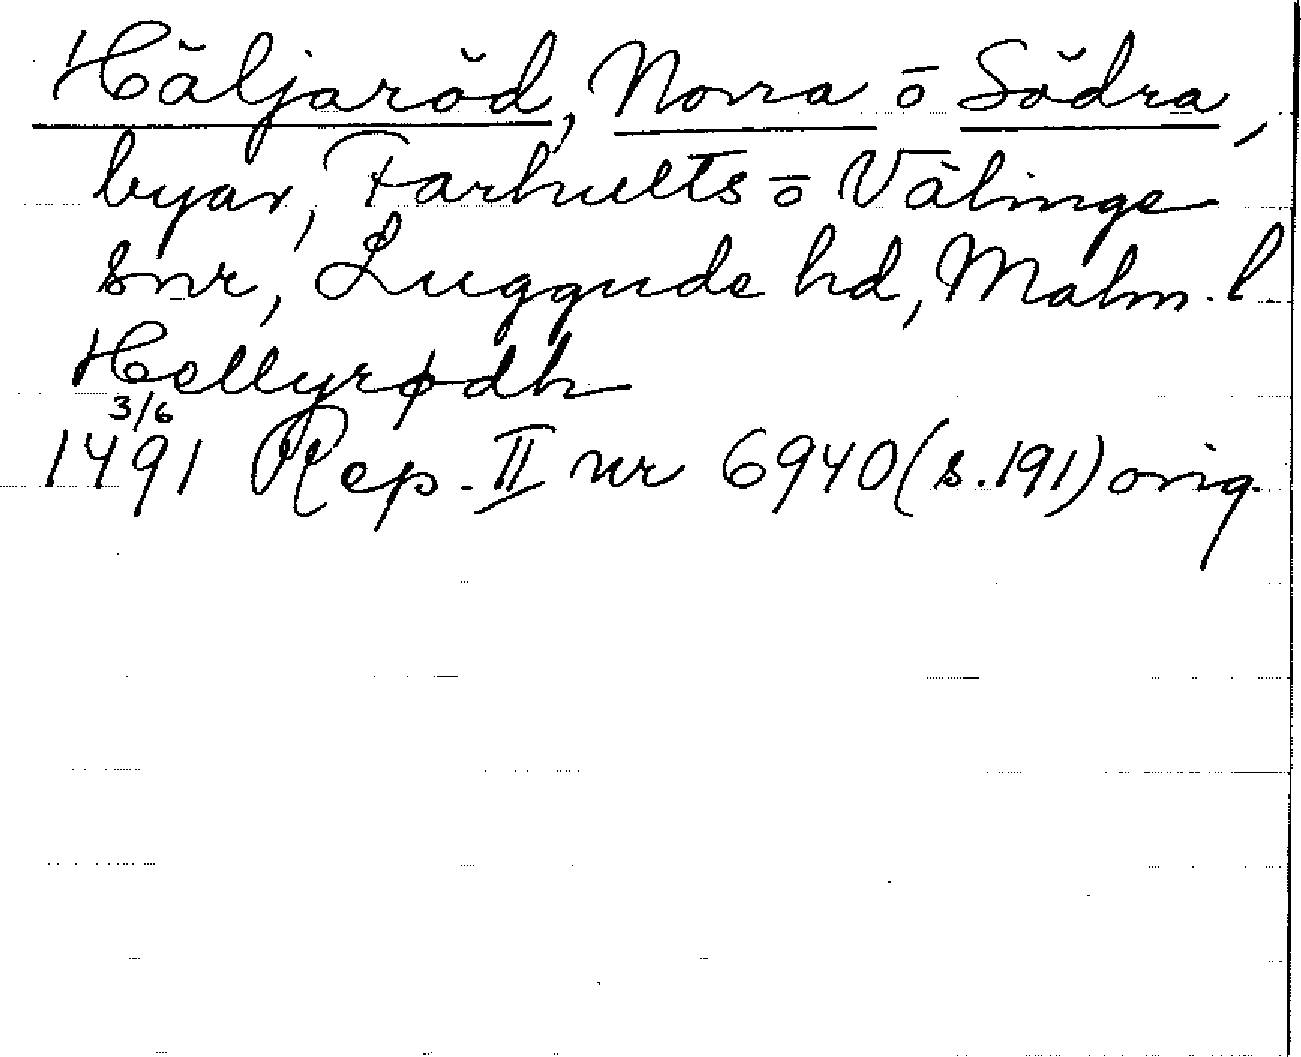 Häljaröd, Norra o Södra,
byar, Farhults o Välinge
snr, Luggude hd, Malm. l
Hellyrødh
3/6
1491 Rep. II nr 6940 (s. 191) orig.